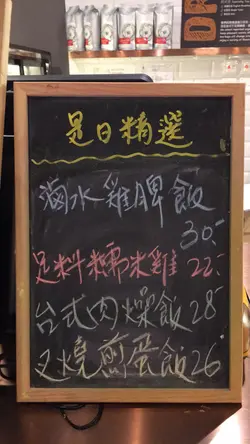 是日精選
滷水雞脾飯
30.-
足料糯米雞 22.-
台式肉燥飯 28.-
叉燒煎蛋飯 26.-